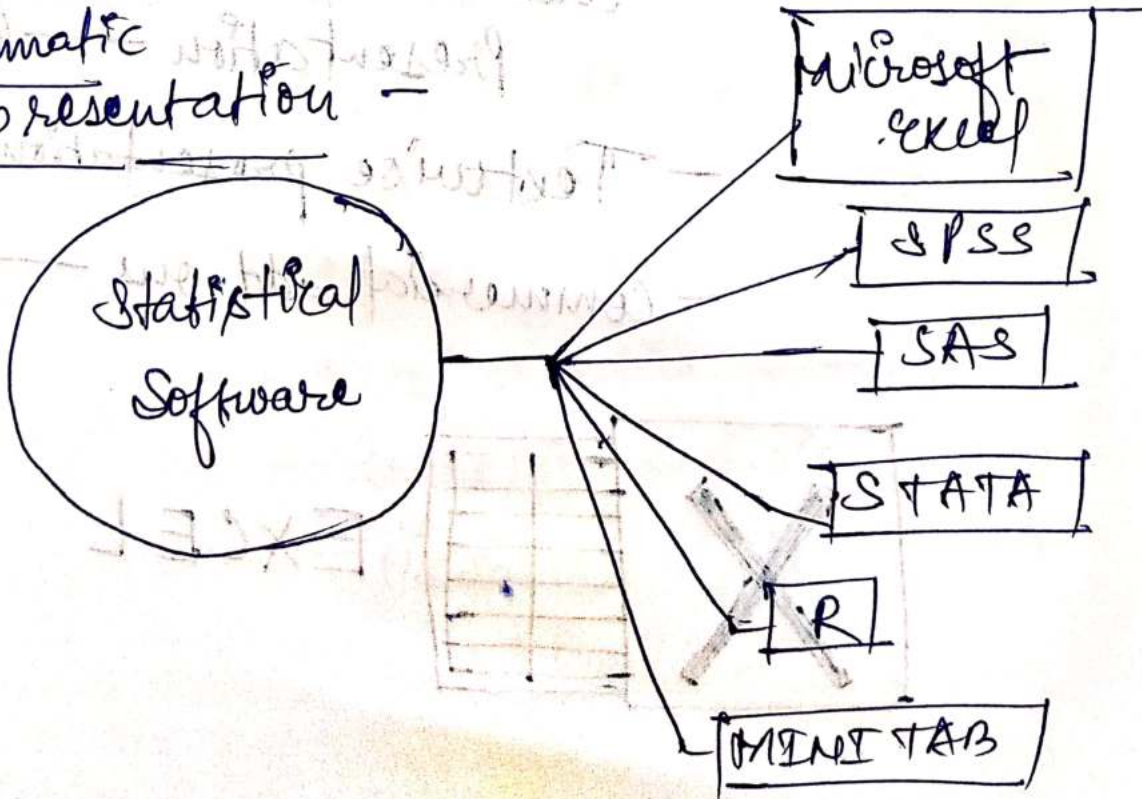 matic
presentation -
Statistical
Software
Microsoft
Excel
SPSS
SAS
STATA
R
MINITAB
EXCEL